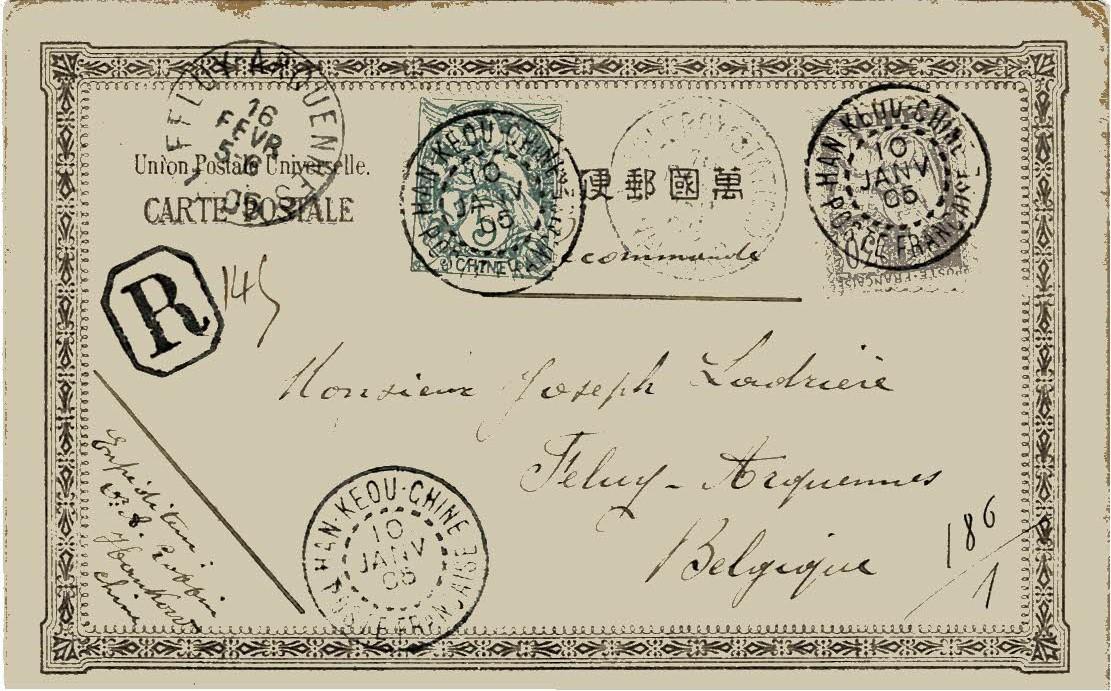 FELUY-ARQUENNES
16
FEVR
5-6
05
Union Postale Universelle.
CARTE POSTALE
HAN-KEOU-CHINE
10
JANV
05
POSTE FRANÇAISE
5
CHINE
便郵國萬
HAN-KEOU-CHINE
10
JANV
05
POSTE FRANÇAISE
POSTE FRANÇAISE
Recommandé
R
145
Monsieur Joseph Ladrière
Feluy-Arquennes
Belgique
186
1
HAN-KEOU-CHINE
10
JANV
05
POSTE FRANÇAISE
Expéditeur
Hankow
Chine